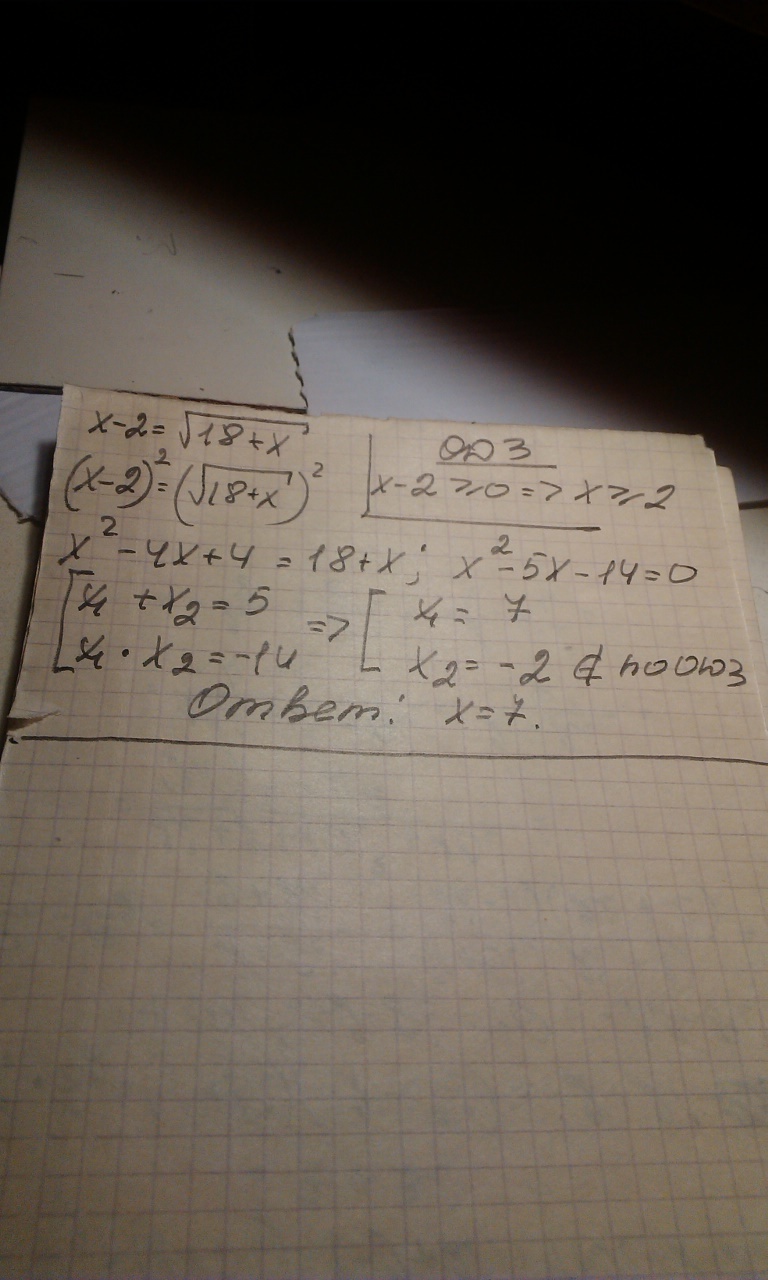 x-2=√18+x
ОДЗ
(x-2)²=(√18+x)²
x-2≥0=>x≥2
x²-4x+4=18+x; x²-5x-14=0
[x₁+x₂=5
x₁·x₂=-14
=>[x₁=7
x₂=-2 ∉ по ОДЗ
Ответ: x=7.